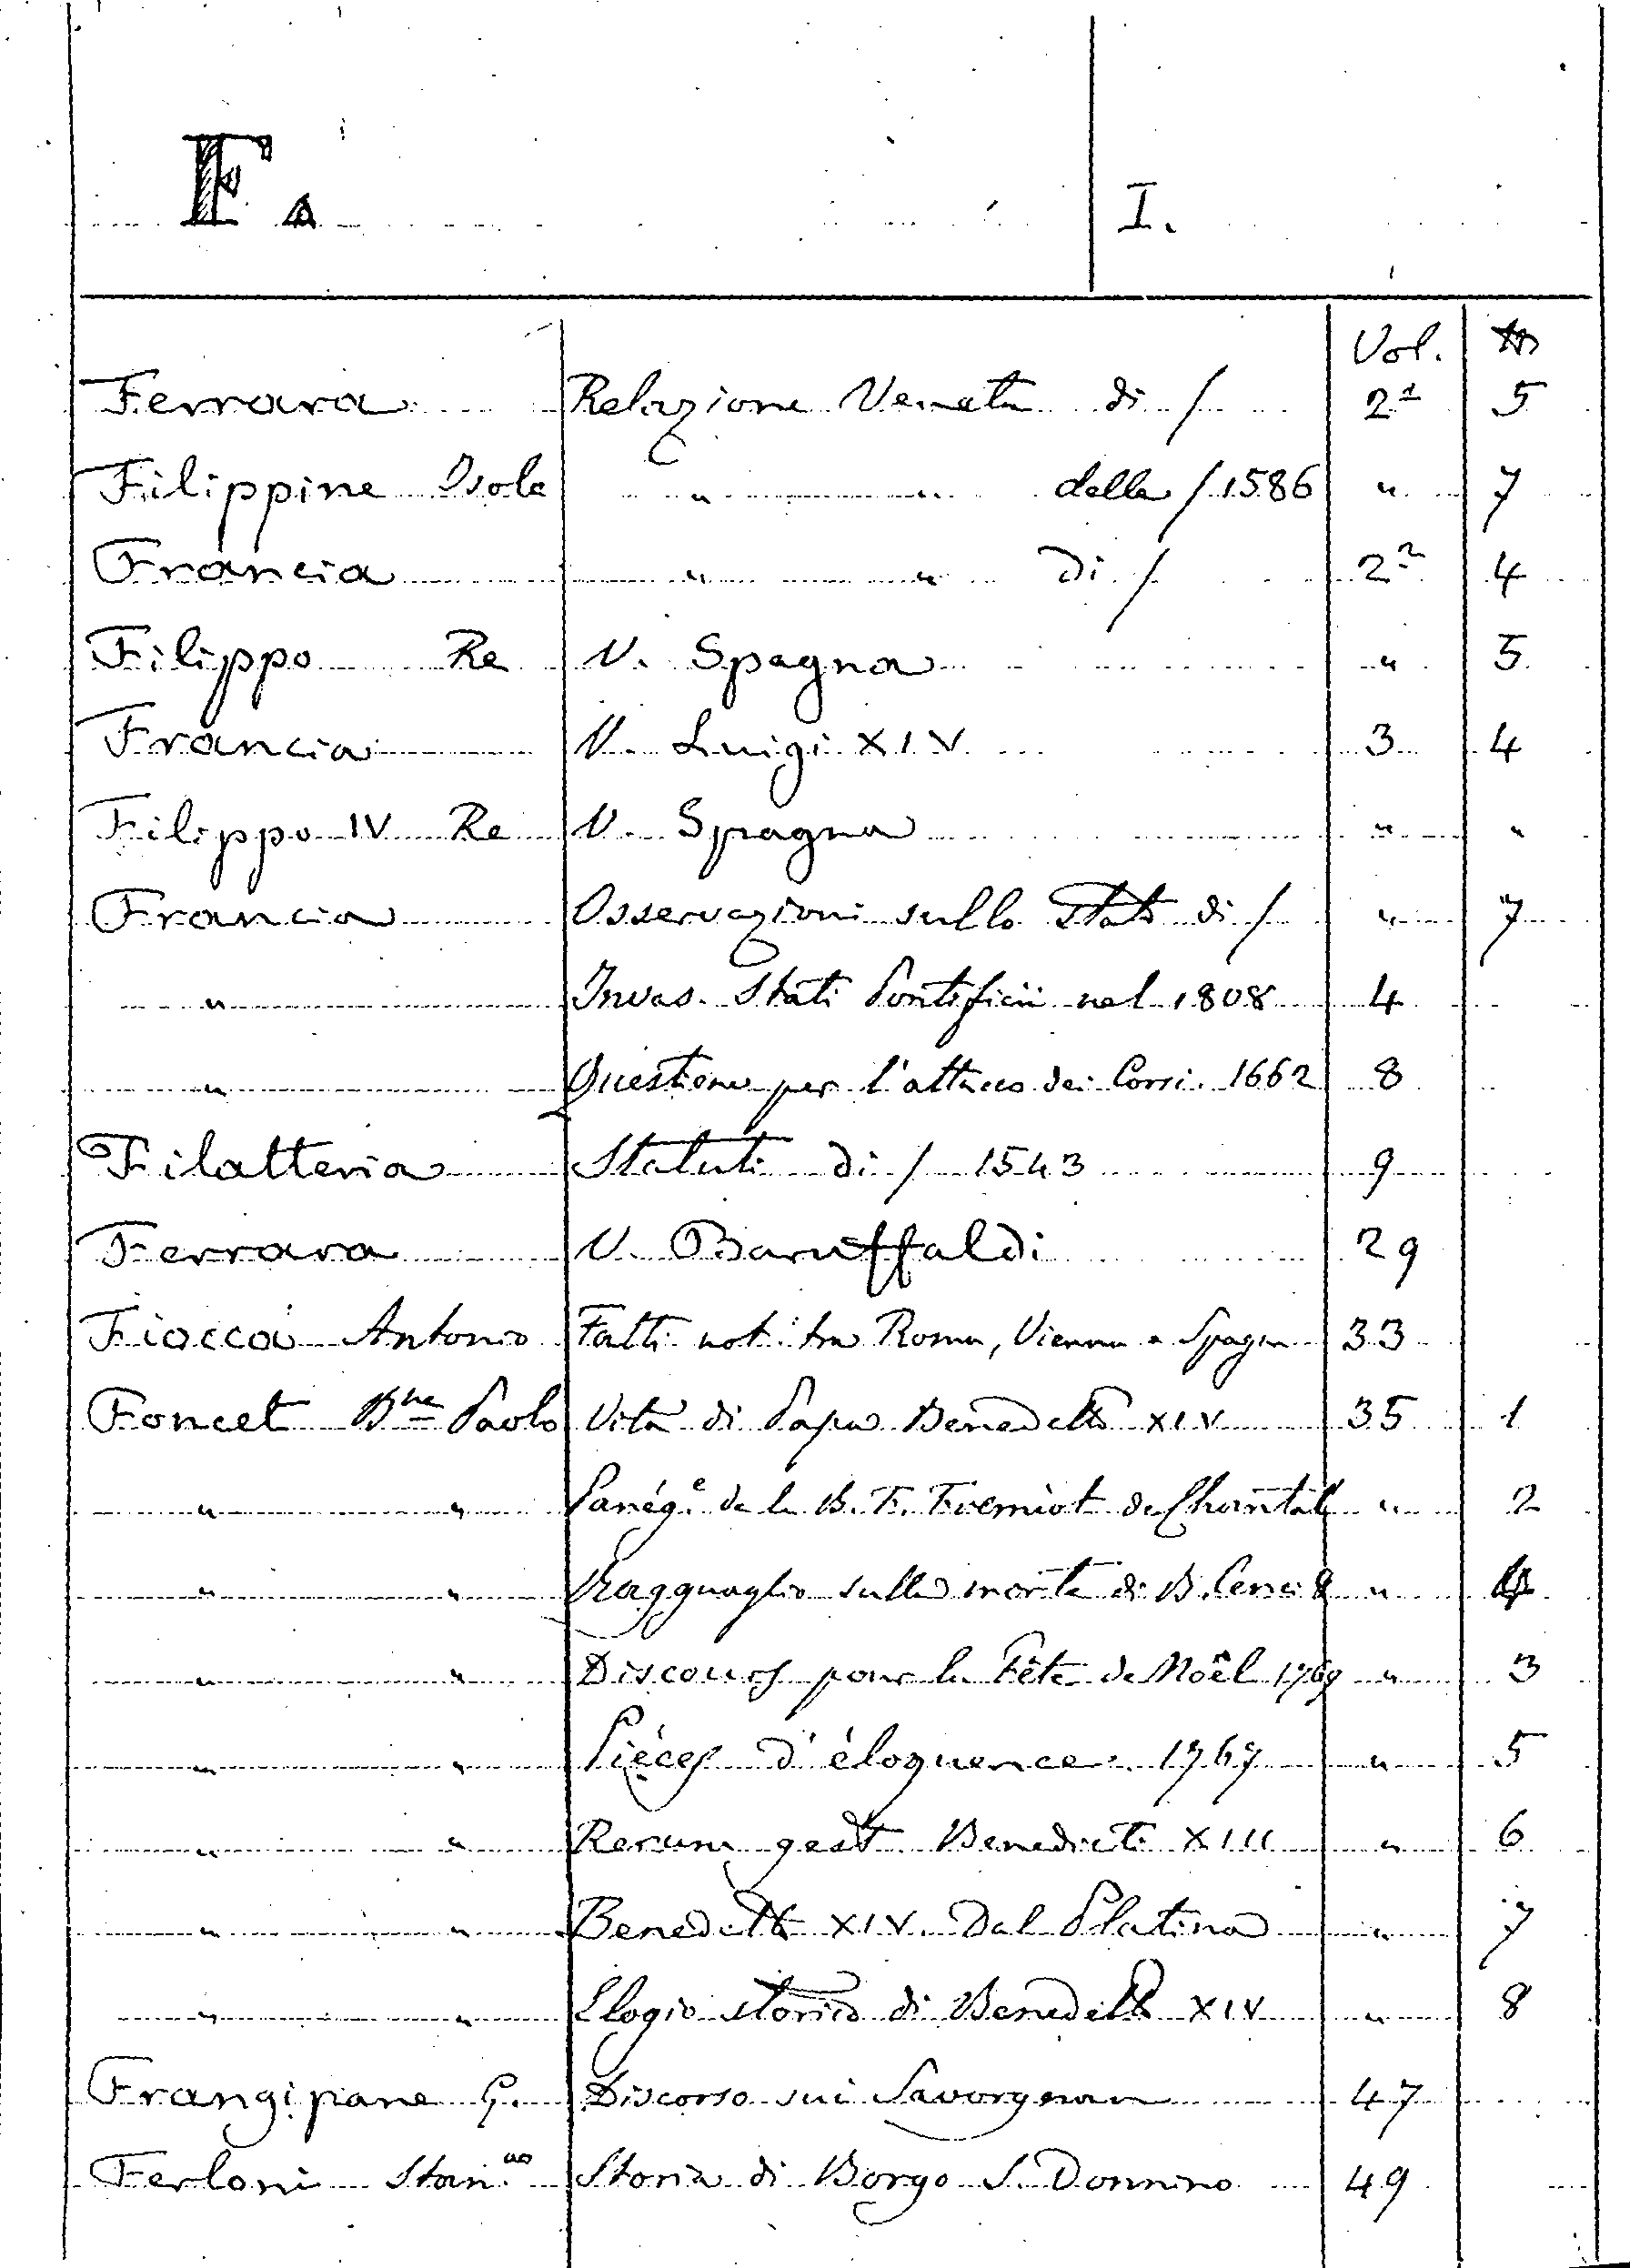 F. I.
Vol. N
Ferrara Relazione Veneta di / 2¹ 5
Filippine Isole " " delle / 1586 " 7
Francia " " di / 2² 4
Filippo Re V. Spagna " 5
Francia V. Luigi XIV 3 4
Filippo IV Re V. Spagna " "
Francia Osservazioni sullo Stato di / " 7
" Invas. Stati Pontificii nel 1808 4
" Questione per l'attacco dei Corsi. 1662 8
Filatteria Statuti di / 1543 9
Ferrara V. Baruffaldi 29
Fiocca Antonio Fatti not. tra Roma, Vienna e Spagna 33
Foncet Bne Paolo Vita di Papa Benedetto XIV 35 1
" " Panége de la B. F. Fremiot de Chantal " 2
" " Ragguaglio sulla morte di B. Cenci " 4
" " Discours pour la Fête de Noël 1769 " 3
" " Pièces d'éloquence. 1767 " 5
" " Rerum gest Benedicti XIII " 6
" " Benedetto XIV. Dal Platina " 7
" " Elogio storico di Benedetto XIV " 8
Frangipane G. Discorso sui Savorgnan 47
Ferloni Stan.ao Storia di Borgo S. Donnino 49